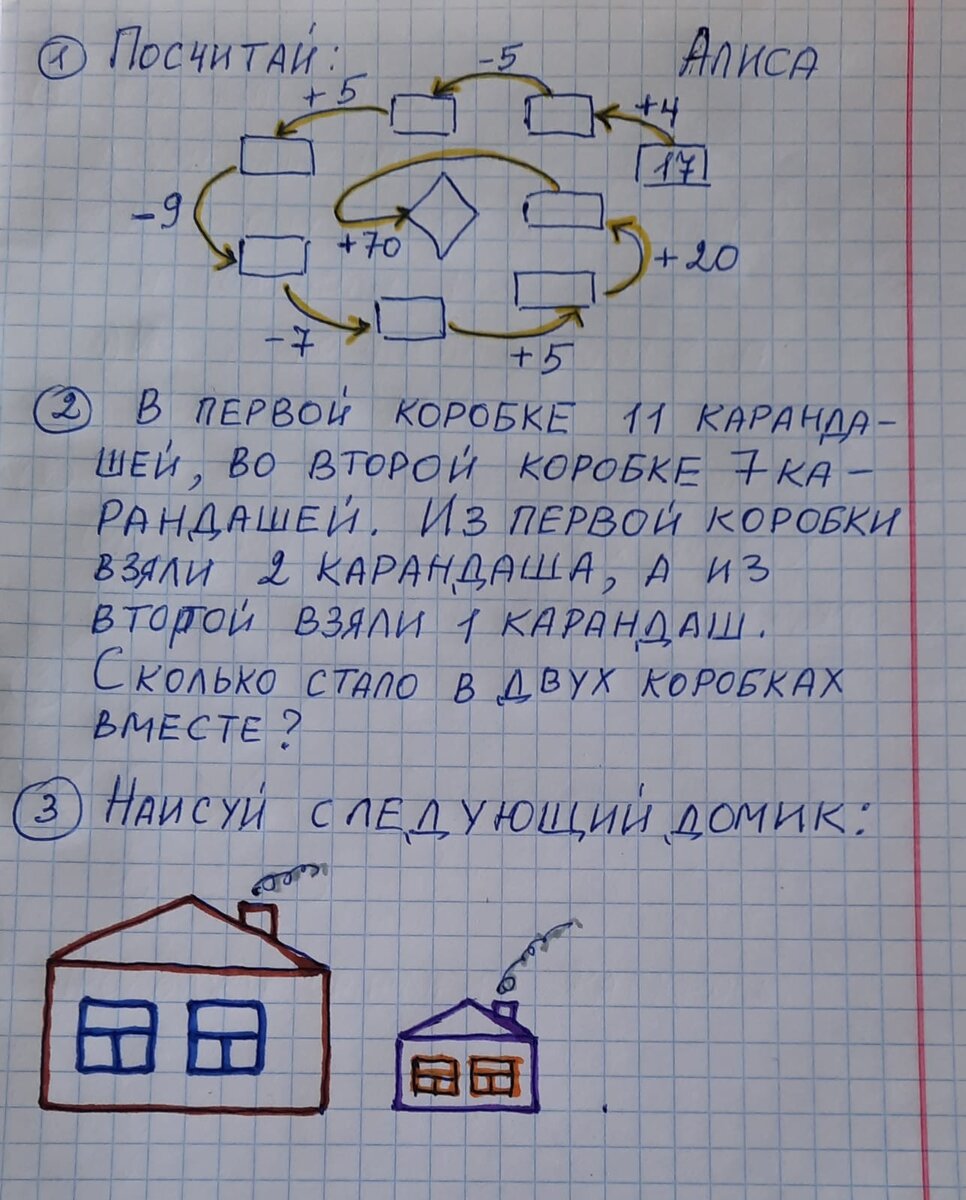 1 Посчитай: Алиса
+5 -5 +4
17
-9 +70 +20
-7 +5
2 В первой коробке 11 каранда-
шей, во второй коробке 7 ка-
рандашей. Из первой коробки
взяли 2 карандаша, а из
второй взяли 1 карандаш.
Сколько стало в двух коробках
вместе?
3 Наисуй следующий домик: